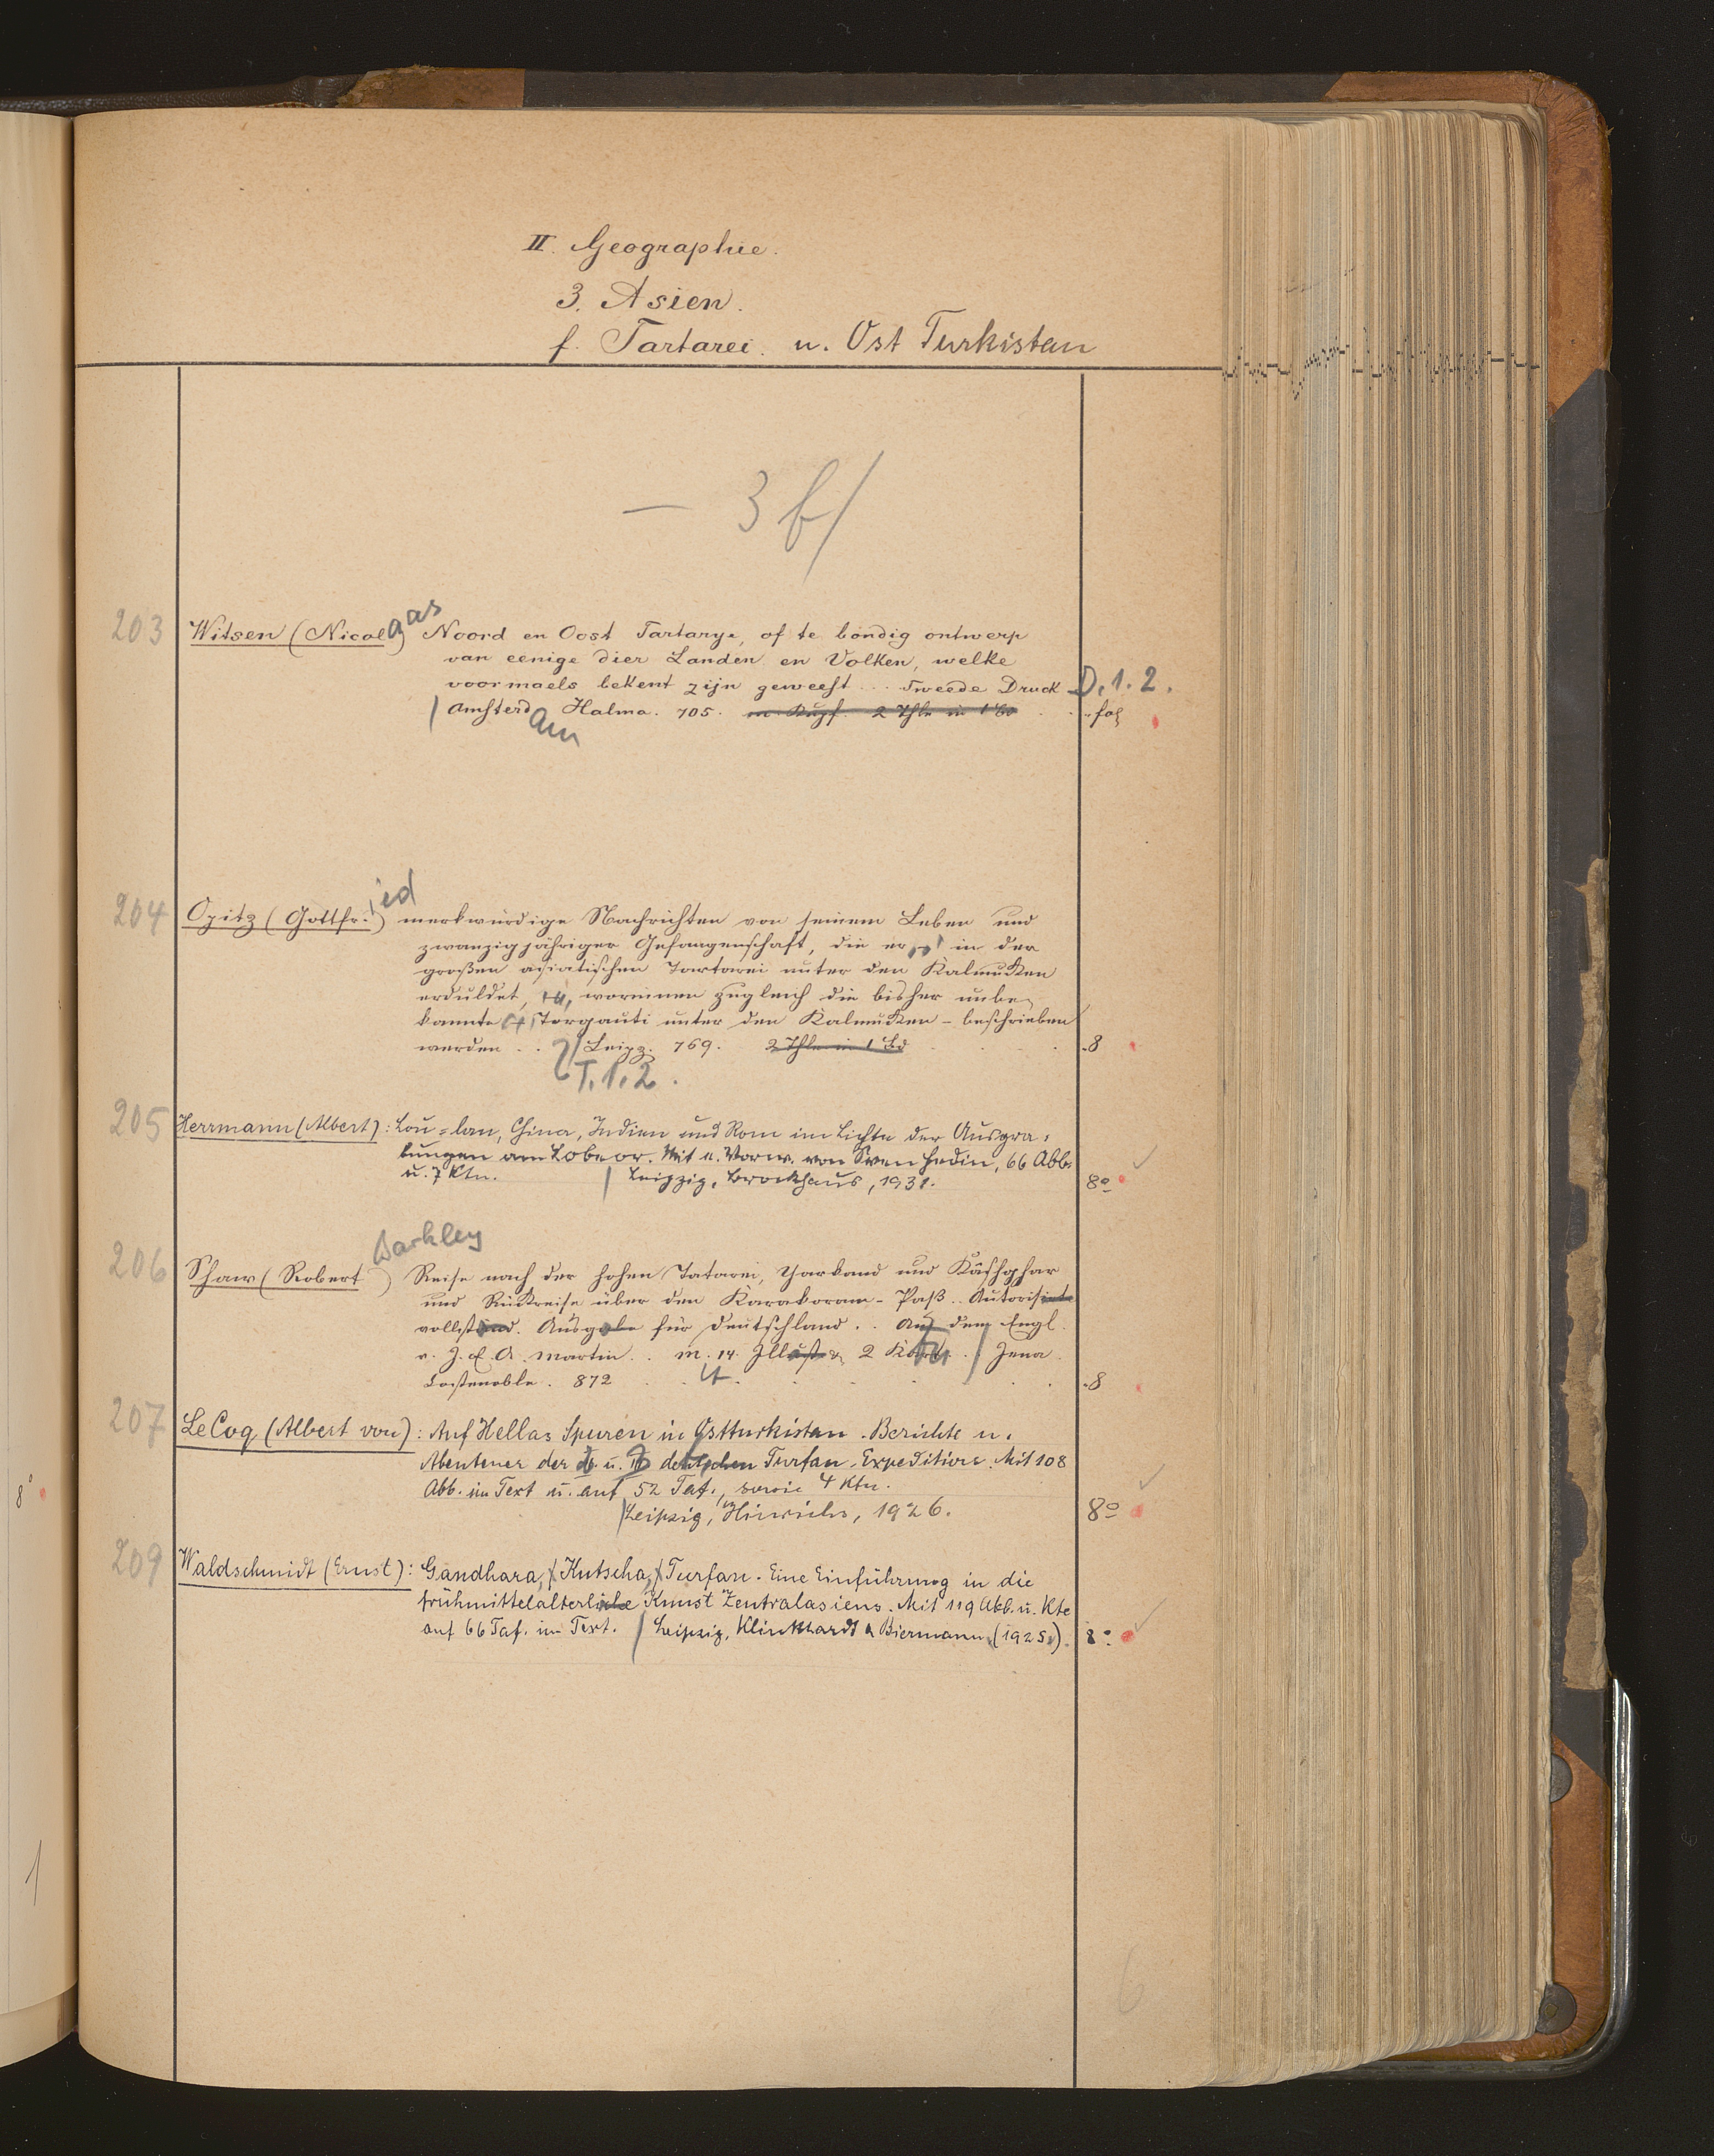 II. Geographie.
3. Asien.
f. Tartarei. u. Ost Turkistan
— 3 f/
203
Witsen (Nicolaas) Noord en Oost Tartarye, of te bondig ontwerp
van eenige dier Landen en Volken, welke
voormaels bekent zijn geweest ... Tweede Druck D. 1. 2.
Amsterdam Halma. 705. m. Kupf. 2 Thle in 1 Bd . . fol
204
Opitz (Gottfried) merkwürdige Nachrichten von seinem Leben und
zwanzigjähriger Gefangenschaft, die er in der
großen asiatischen Tartarei unter den Kalmucken
erduldet, worinnen zugleich die bisher unbe-
kannte Torgauti unter den Kalmucken - beschrieben
werden . . / Leipz. 769. 2 Thle in 1 Bd . . . 8
T. 1. 2.
205
Herrmann (Albert): Lou=lan, China, Indien und Rom im Lichte der Ausgra=
bungen am Lobnor. Mit e. Vorw. von Sven Hedin, 66 Abb.
u. 7 Ktn. / Leipzig, Brockhaus, 1931. 8°
206
Barkley
Shaw (Robert ) Reise nach der hohen Tatarei, Yarkand und Kâshghar
und Rückreise über den Karakoram-Paß.. Autorisirte
vollständ. Ausgabe für Deutschland . . Aus dem Engl.
v. J. E. A. Martin . . m. 14. Illustr. & 2 Kart. . / Jena.
Costenoble. 872 . . . . 8
207
Le Coq (Albert von): Auf Hellas Spuren in Ostturkistan. Berichte u.
Abenteuer der II. u. III. deutschen Turfan-Expedition. Mit 108
Abb. im Text u. auf 52 Taf., sowie 4 Ktn.
/ Leipzig, Hinrichs, 1926. 8°
209
Waldschmidt (Ernst): Gandhara, / Kutscha, / Turfan. Eine Einführung in die
frühmittelalterliche Kunst Zentralasiens. Mit 119 Abb. u. Kte
auf 66 Taf. im Text. / Leipzig, Klinkhardt & Biermann (1925.). 8°
6
8°
1